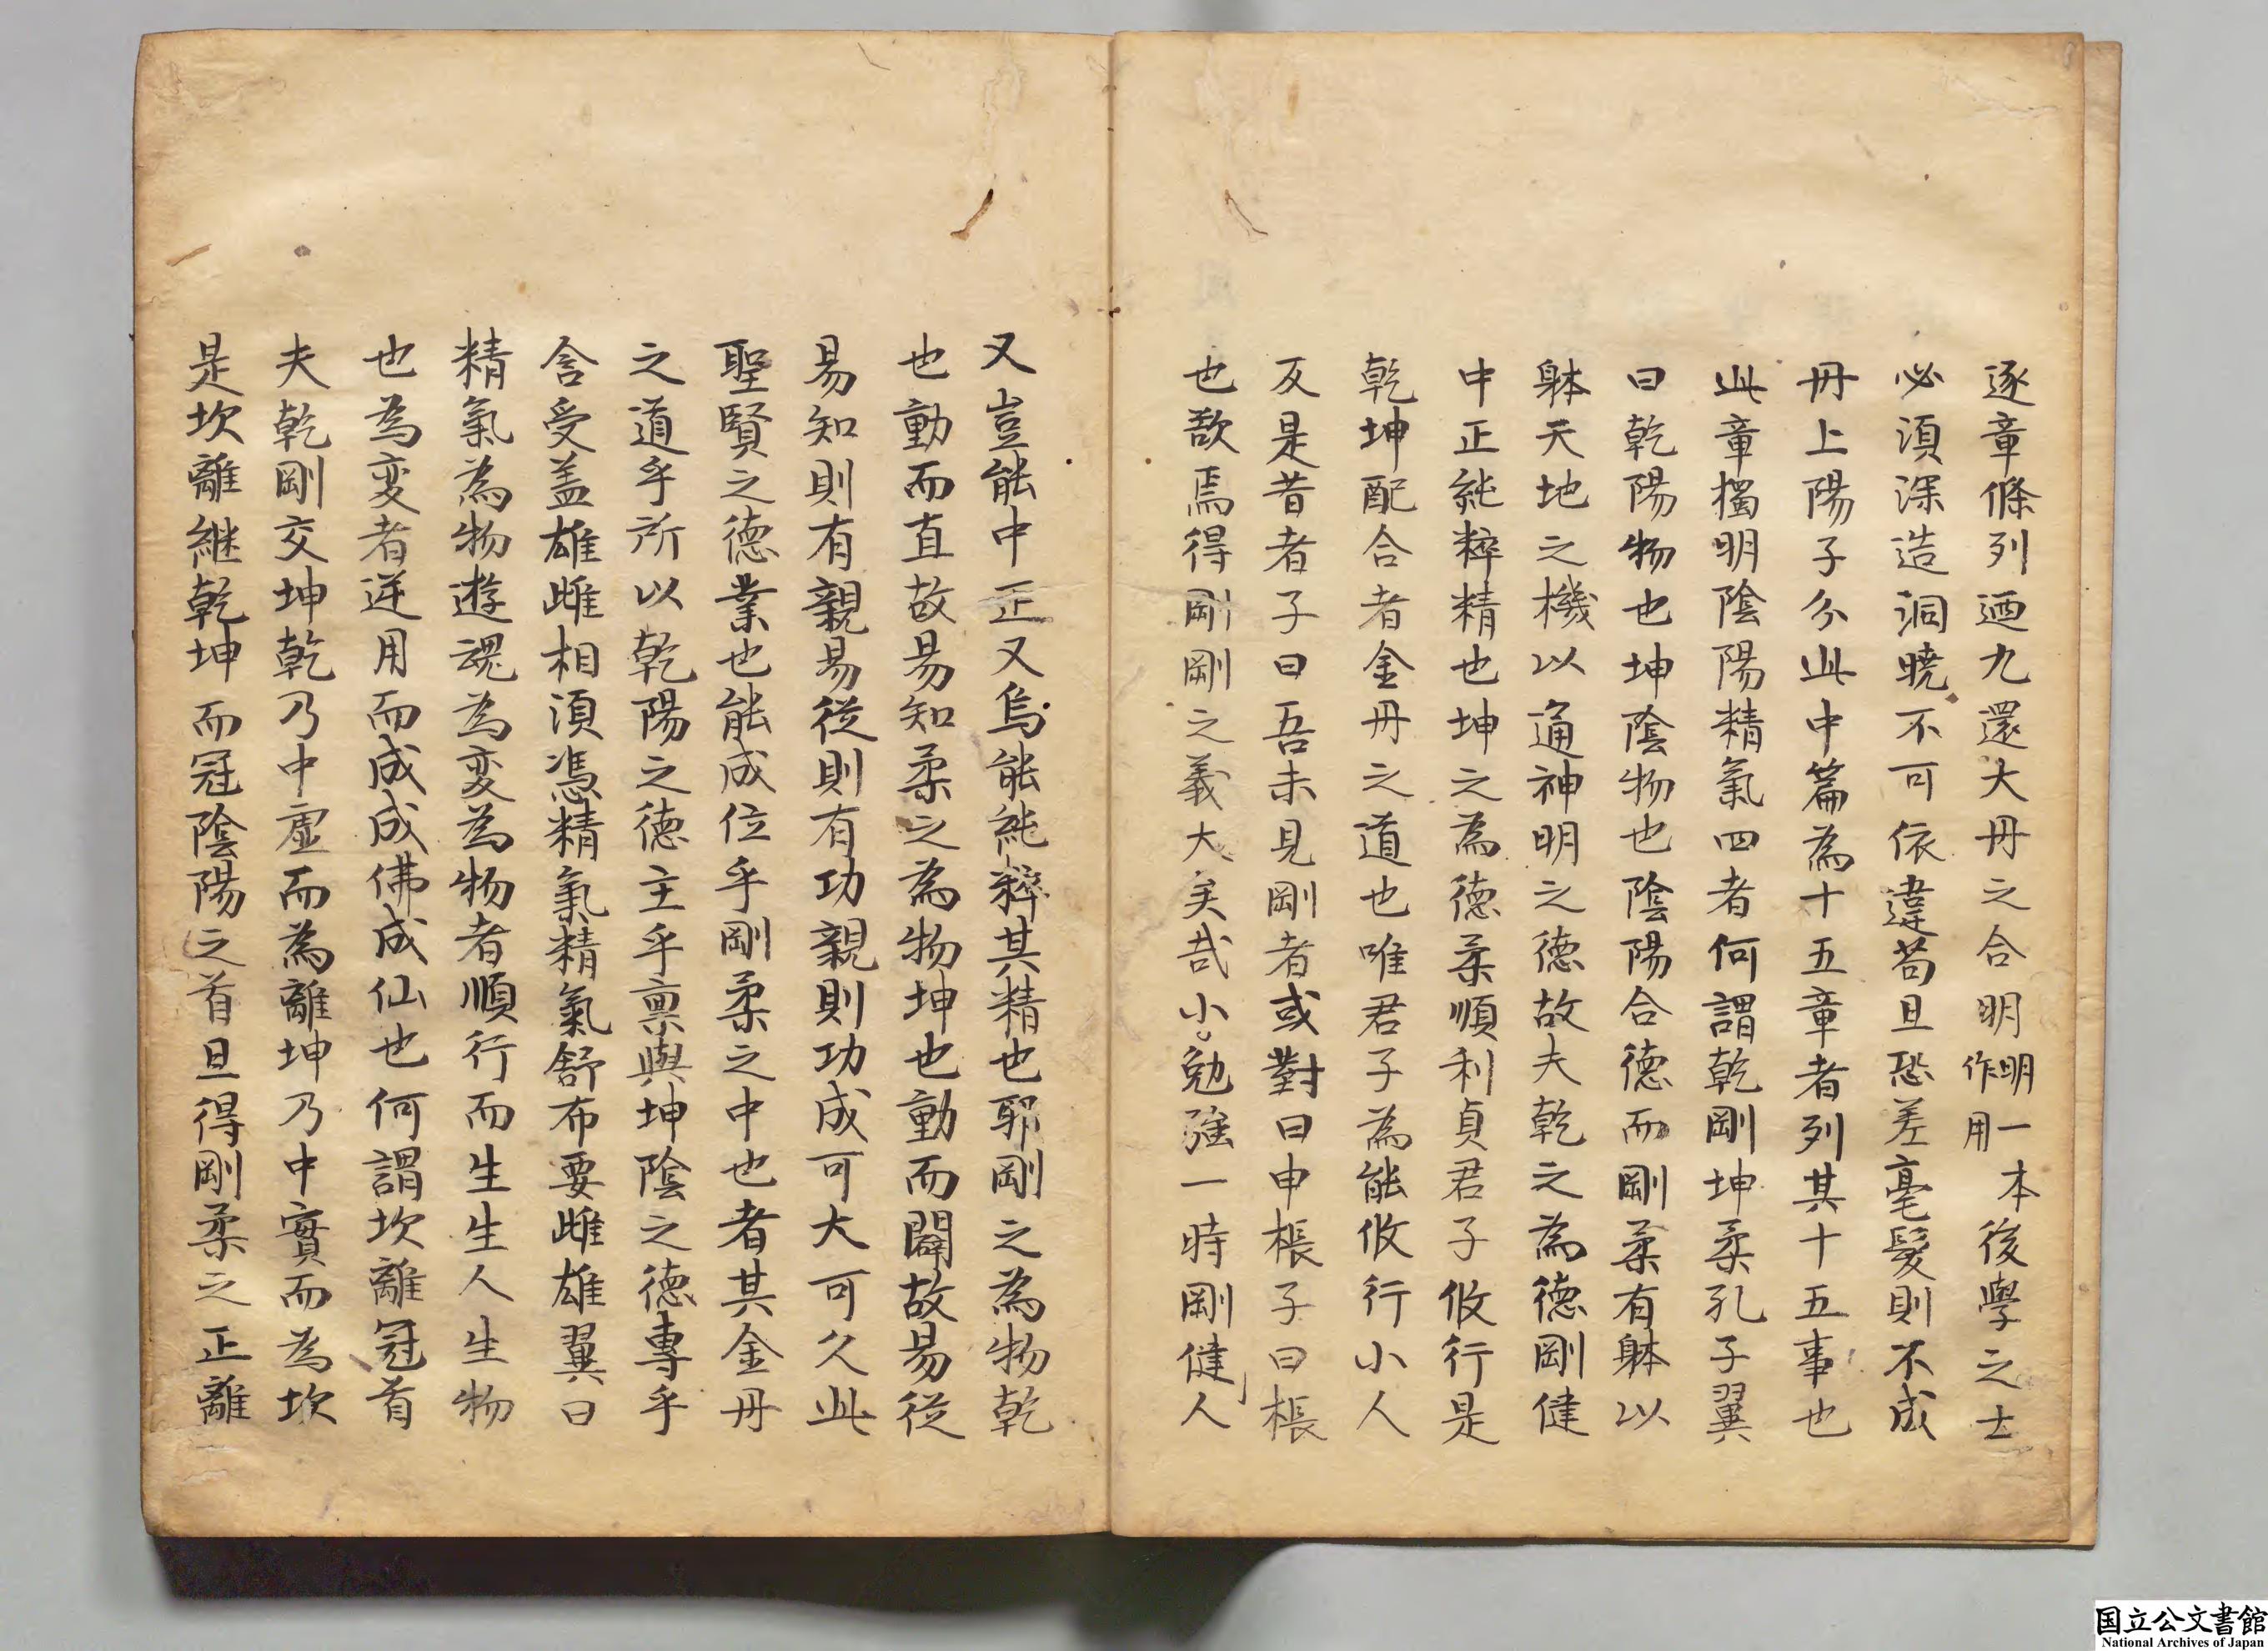 逐章條列迺九還大丹之合明明一本作用後學之士
必須深造洞曉不可依違苟且恐差毫髮則不成
丹上陽子分此中篇為十五章者列其十五事也
此章獨明陰陽精氣四者何謂乾剛坤柔孔子翼
曰乾陽物也坤陰物也陰陽合德而剛柔有躰以
躰天地之機以通神明之德故夫乾之為德剛健
中正純粹精也坤之為德柔順利貞君子攸行是
乾坤配合者金丹之道也唯君子為能攸行小人
反是昔者子曰吾未見剛者或對曰申棖子曰棖
也慾焉得剛剛之義大矣哉小勉強一時剛健人
又豈能中正又烏能純粹其精也耶剛之為物乾
也動而直故易知柔之為物坤也動而闢故易從
易知則有親易從則有功親則功成可大可久此
聖賢之德業也能成位乎剛柔之中也者其金丹
之道乎所以乾陽之德主乎禀與坤陰之德專乎
含受盖雄雌相須憑精氣精氣舒布要雌雄翼曰
精氣為物遊魂為変為物者順行而生生人生物
也為変者逆用而成成佛成仙也何謂坎離冠首
夫乾剛交坤乾乃中虛而為離坤乃中實而為坎
是坎離継乾坤而冠陰陽之首且得剛柔之正離
国立公文書館
National Archives of Japan